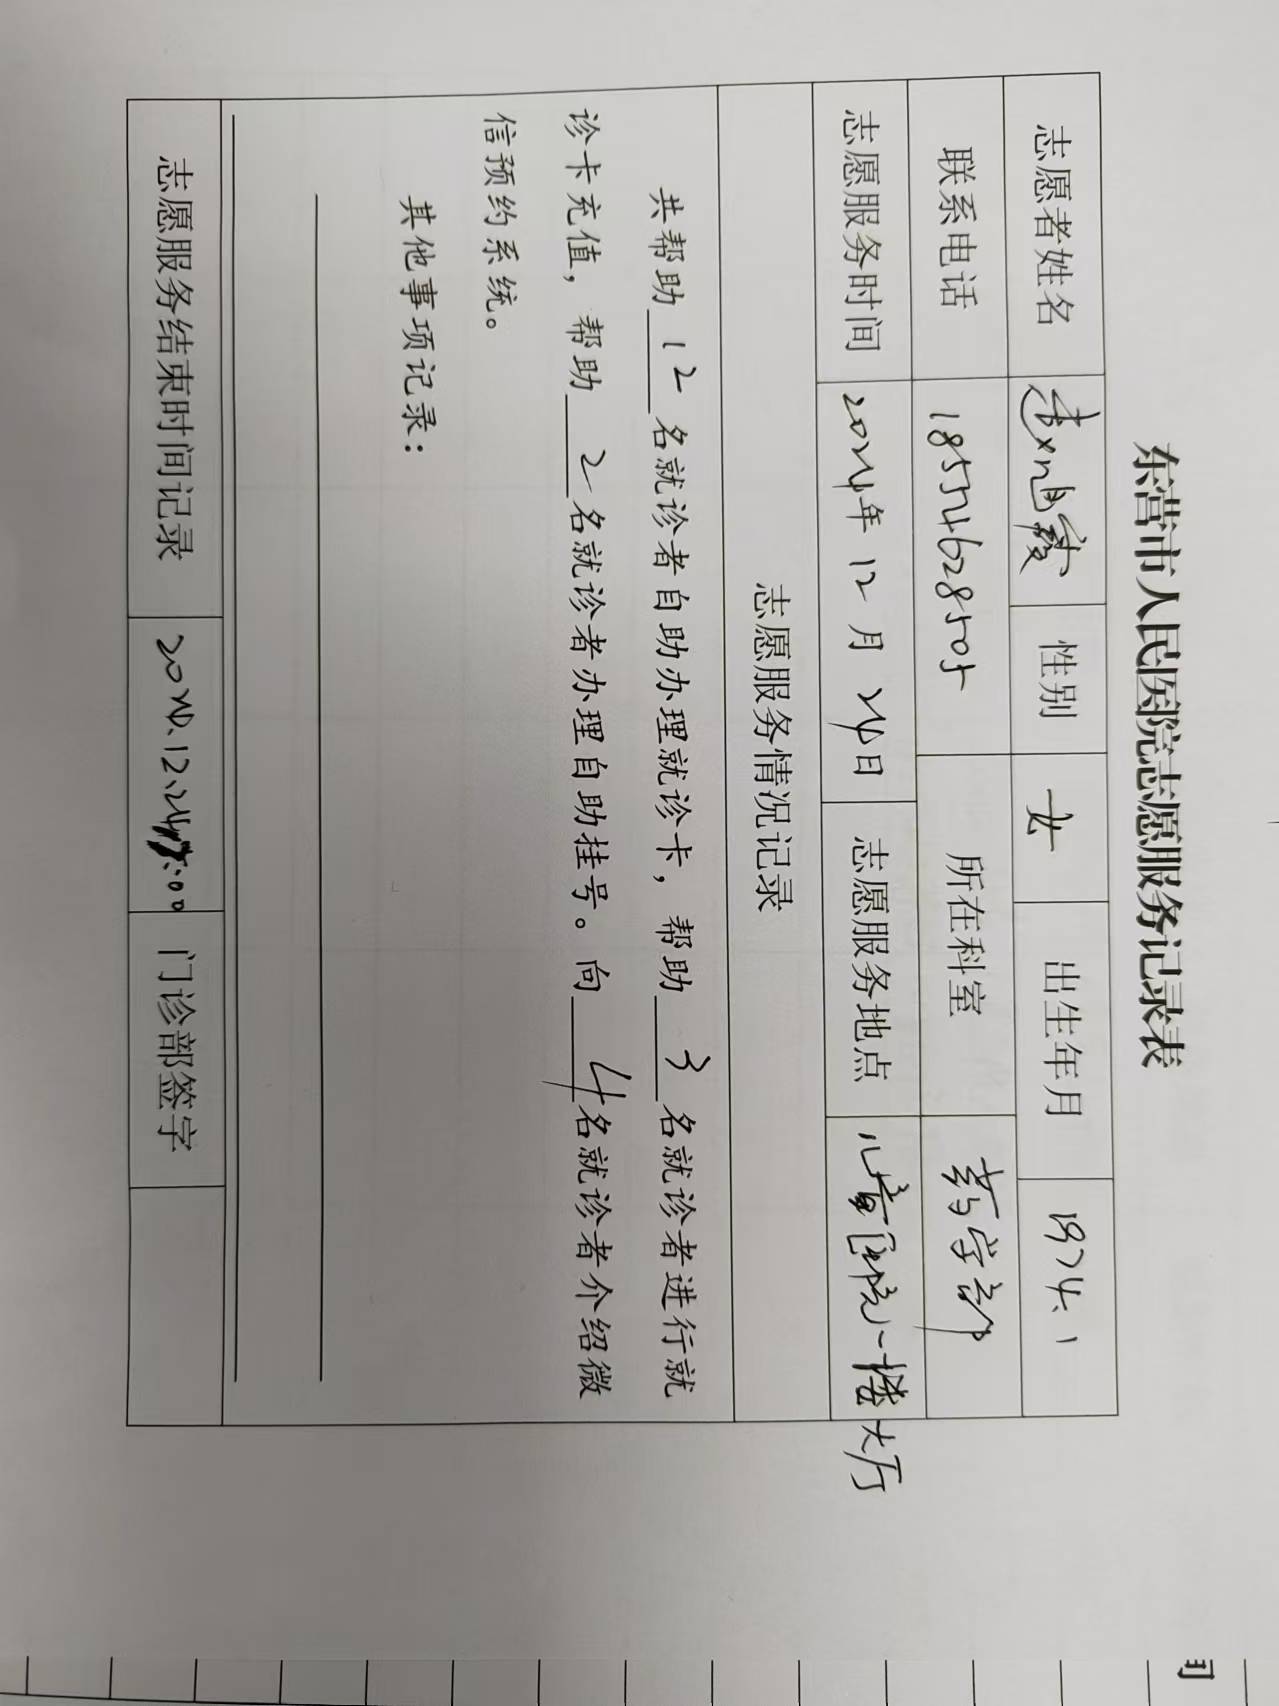 东营市人民医院志愿服务记录表
志愿者姓名 性别 女 出生年月 1974.1
联系电话 18554628505 所在科室 药学部
志愿服务时间 2024年12月24日 志愿服务地点 儿童医院一楼大厅
志愿服务情况记录
共帮助 12 名就诊者自助办理就诊卡，帮助 3 名就诊者进行就
诊卡充值，帮助 2 名就诊者办理自助挂号。向 4 名就诊者介绍微
信预约系统。
其他事项记录：
志愿服务结束时间记录 门诊部签字